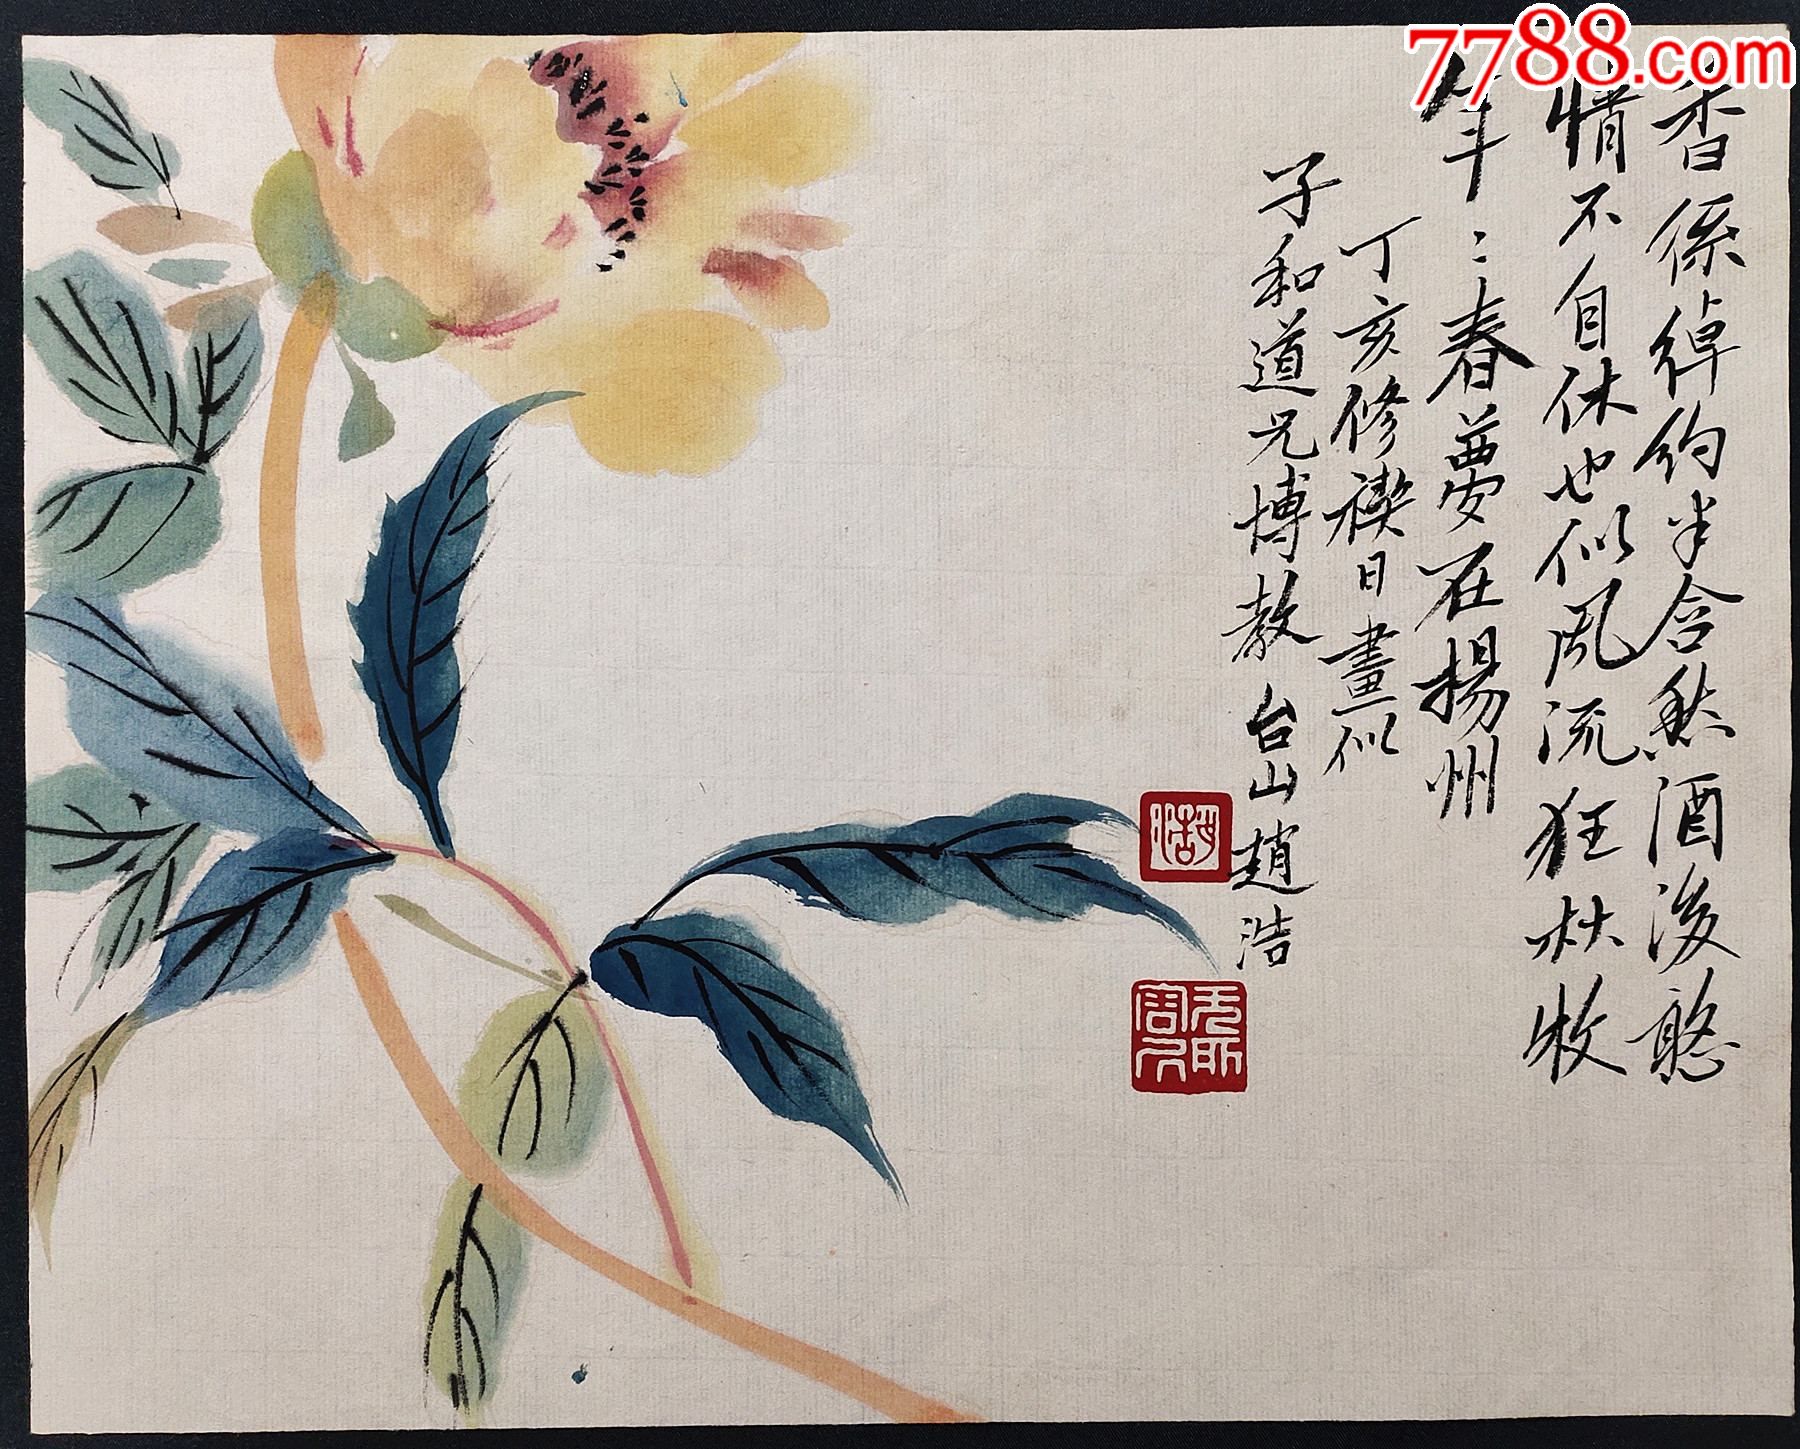 7788.com
香係綽約半含愁酒後憨
情不自休也似風流狂杜牧
年〻春夢在揚州
丁亥修禊日畫似
子和道兄博教 台山趙浩